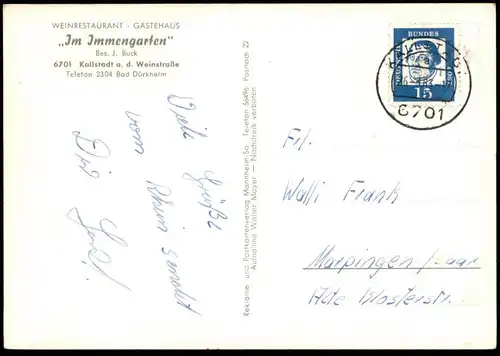 WEINRESTAURANT - GÄSTEHAUS
„Im Immengarten"
Bes. J. Buck
6701 Kallstadt a. d. Weinstraße
Telefon 2304 Bad Dürkheim
Viele Grüße
vom Rhein sendet
Dir
Reklame- und Postkartenverlag Mannheim-Sa. Telefon 59496 Postfach 22
Aufnahme Walter Mayer — Nachdruck verboten
DEUTSCHE BUNDESPOST
15
6701
Frl.
Walli Frank
Marpingen / Saar
Alte Klosterstr.